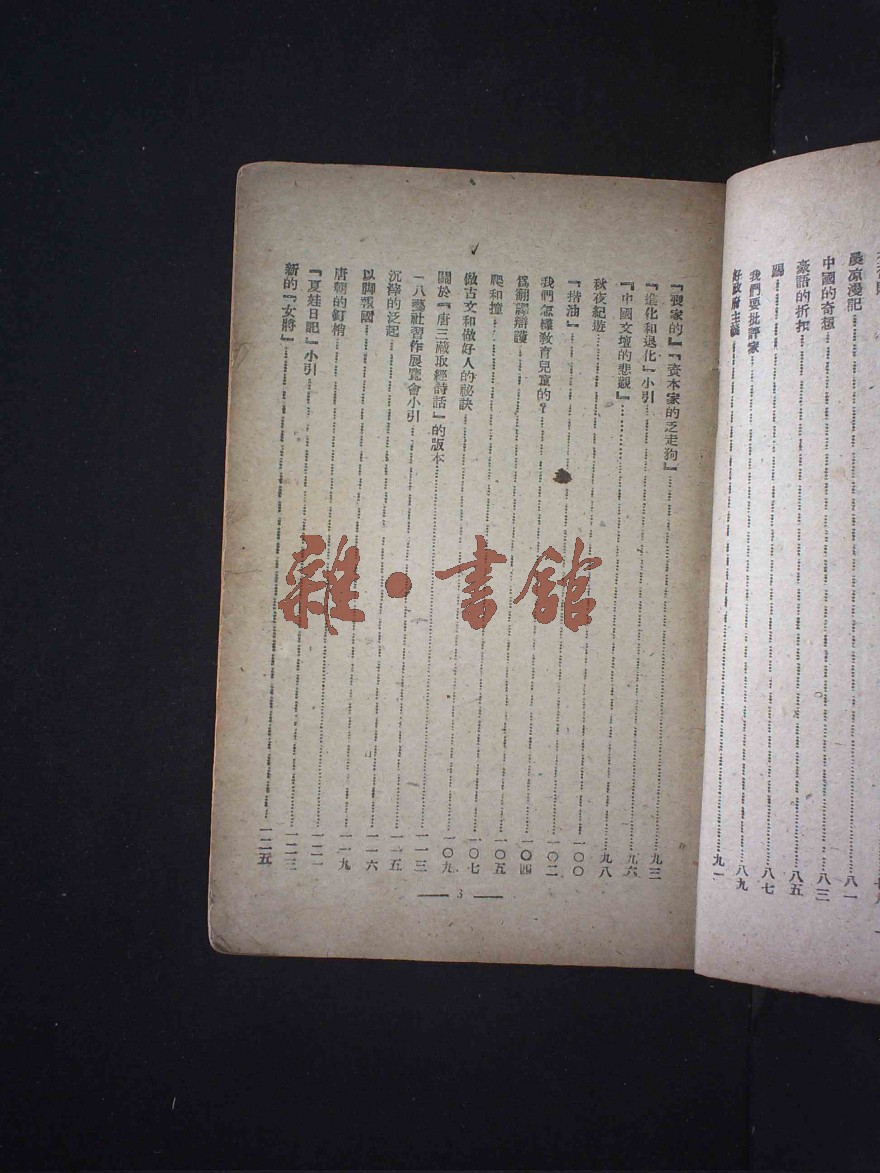 晨凉漫記……八一
中國的奇想……八三
豪語的折扣……八五
踢……八七
我們要批評家……八九
好政府主義……九一
『喪家的』『資本家的乏走狗』……九三
『進化和退化』小引……九六
『中國文壇的悲觀』……九八
秋夜紀遊……一〇〇
『揩油』……一〇二
我們怎樣敎育兒童的?……一〇四
爲翻譯辯護……一〇五
爬和撞……一〇七
做古文和做好人的祕訣……一〇九
關於『唐三藏取經詩話』的版本……一一三
一八藝社習作展覽會小引……一一五
沉滓的泛起……一一六
以脚報國……一一九
唐朝的釘梢……一二一
『夏娃日記』小引……一二三
新的『女將』……一二五
— 3 —
雜·書館